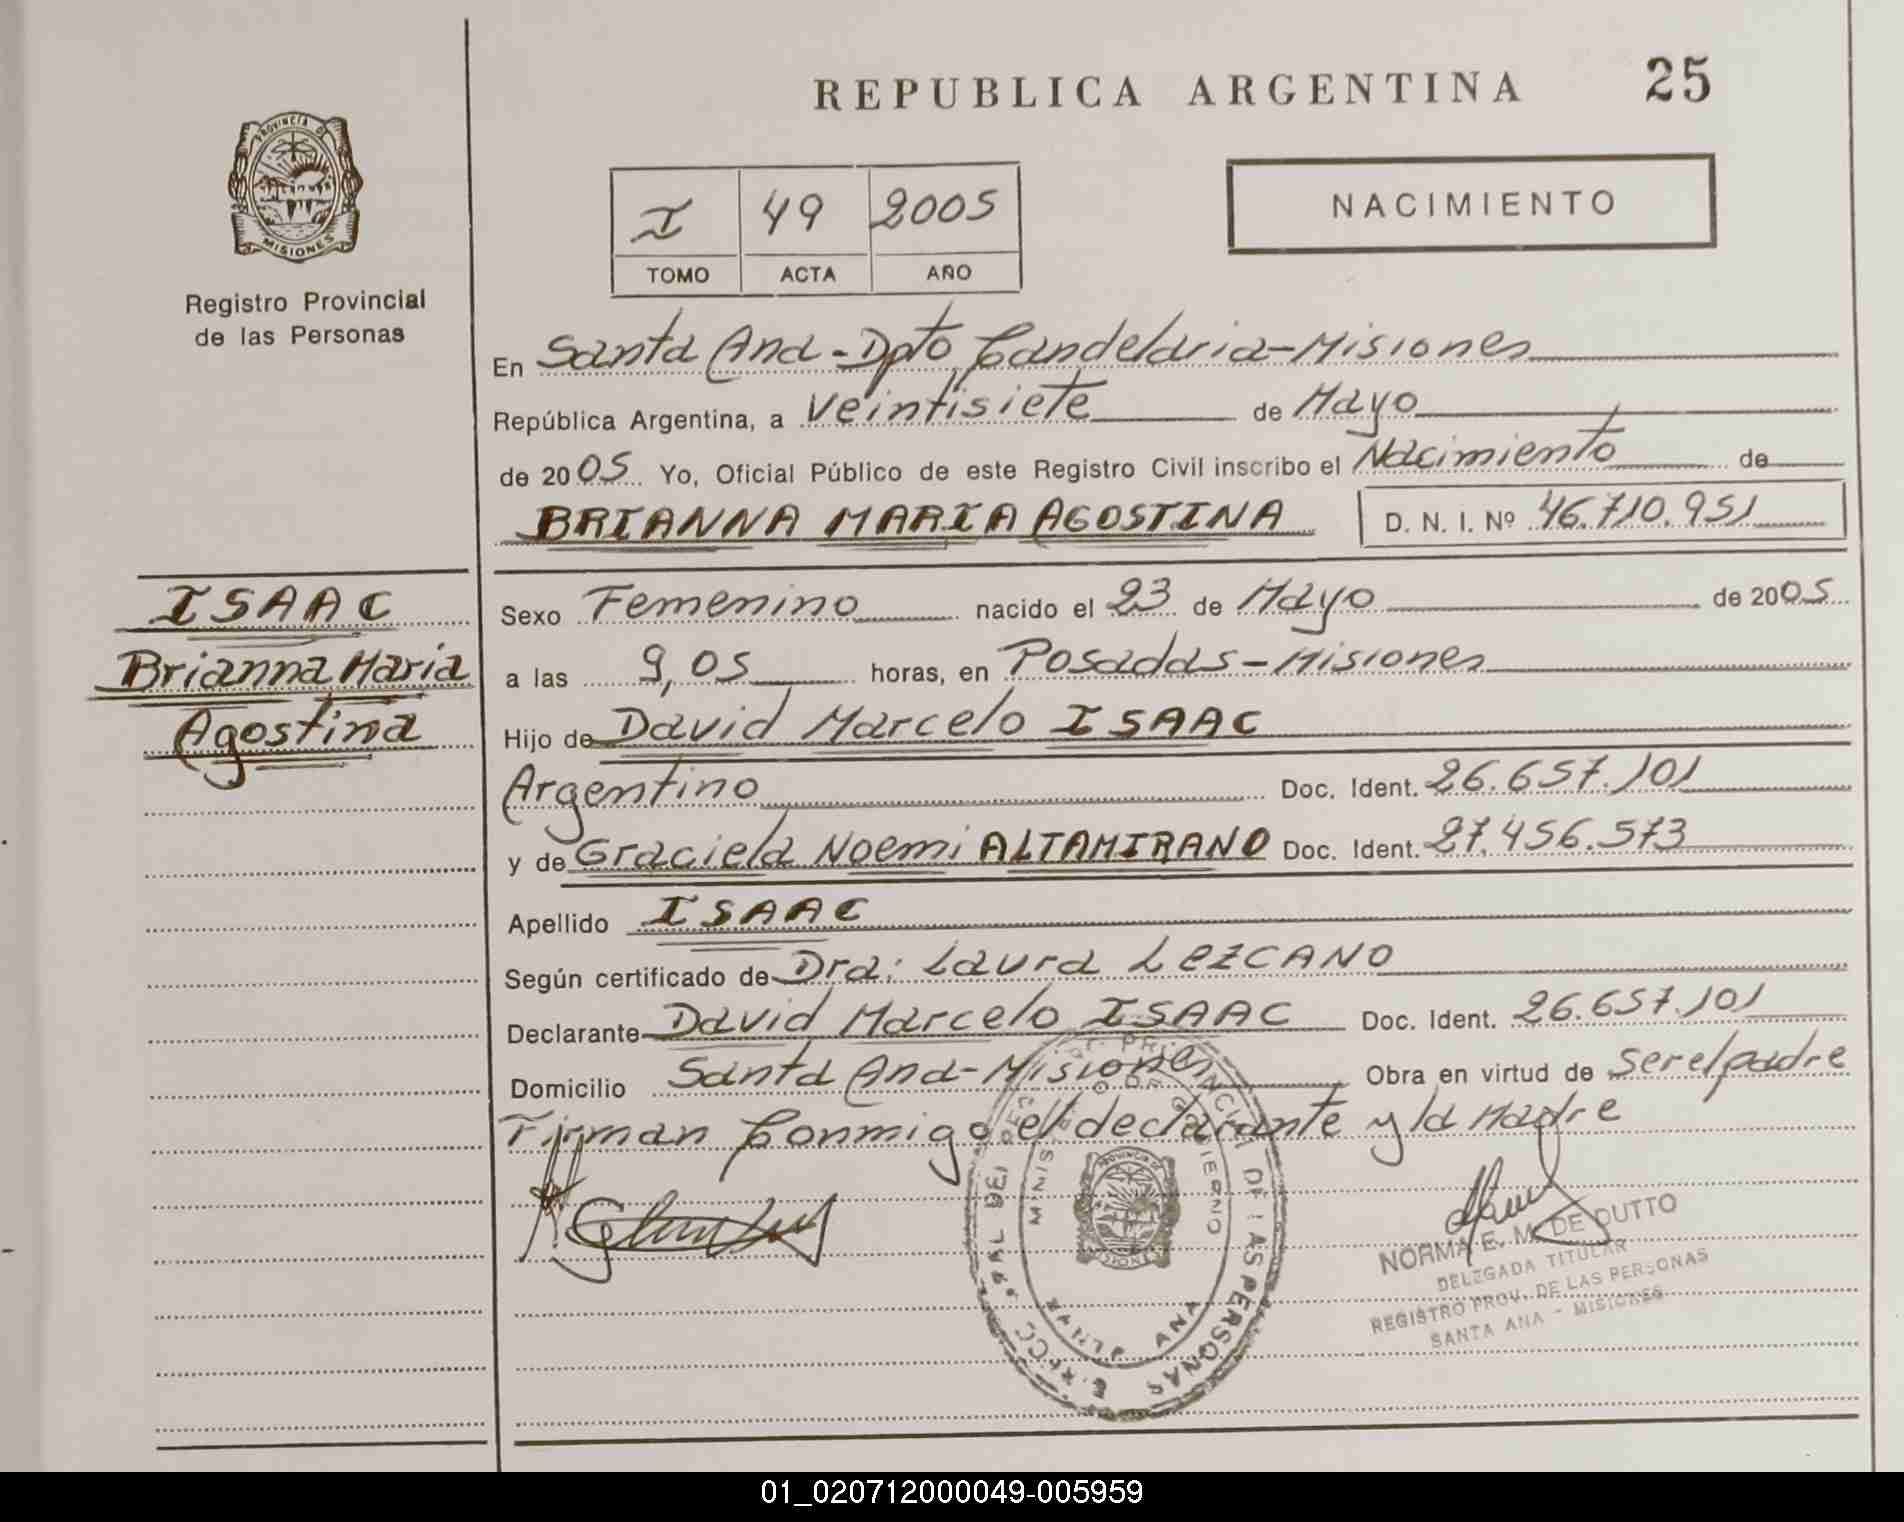 REPUBLICA ARGENTINA 25
PROVINCIA DE
MISIONES
Registro Provincial
de las Personas
I 49 2005
TOMO ACTA AÑO
NACIMIENTO
En Santa Ana - Dpto Candelaria - Misiones
República Argentina, a Veintisiete de Mayo
de 2005 Yo, Oficial Público de este Registro Civil inscribo el Nacimiento de
BRIANNA MARIA AGOSTINA D. N. I. Nº 46.710.951
ISAAC
Brianna Maria
Agostina
Sexo Femenino nacido el 23 de Mayo de 2005
a las 9,05 horas, en Posadas - Misiones
Hijo de David Marcelo ISAAC
Argentino Doc. Ident. 26.657.101
y de Graciela Noemi ALTAMIRANO Doc. Ident. 27.456.573
Apellido ISAAC
Según certificado de Dra: Laura LEZCANO
Declarante David Marcelo ISAAC Doc. Ident. 26.657.101
Domicilio Santa Ana - Misiones Obra en virtud de ser el padre
Firman Conmigo el declarante y la Madre
PROVINCIA DE
MISIONES
DE LAS PERSONAS
GOBIERNO
ANA
NORMA E. M. DE DUTTO
DELEGADA TITULAR
REGISTRO PROV. DE LAS PERSONAS
SANTA ANA - MISIONES
01_020712000049-005959